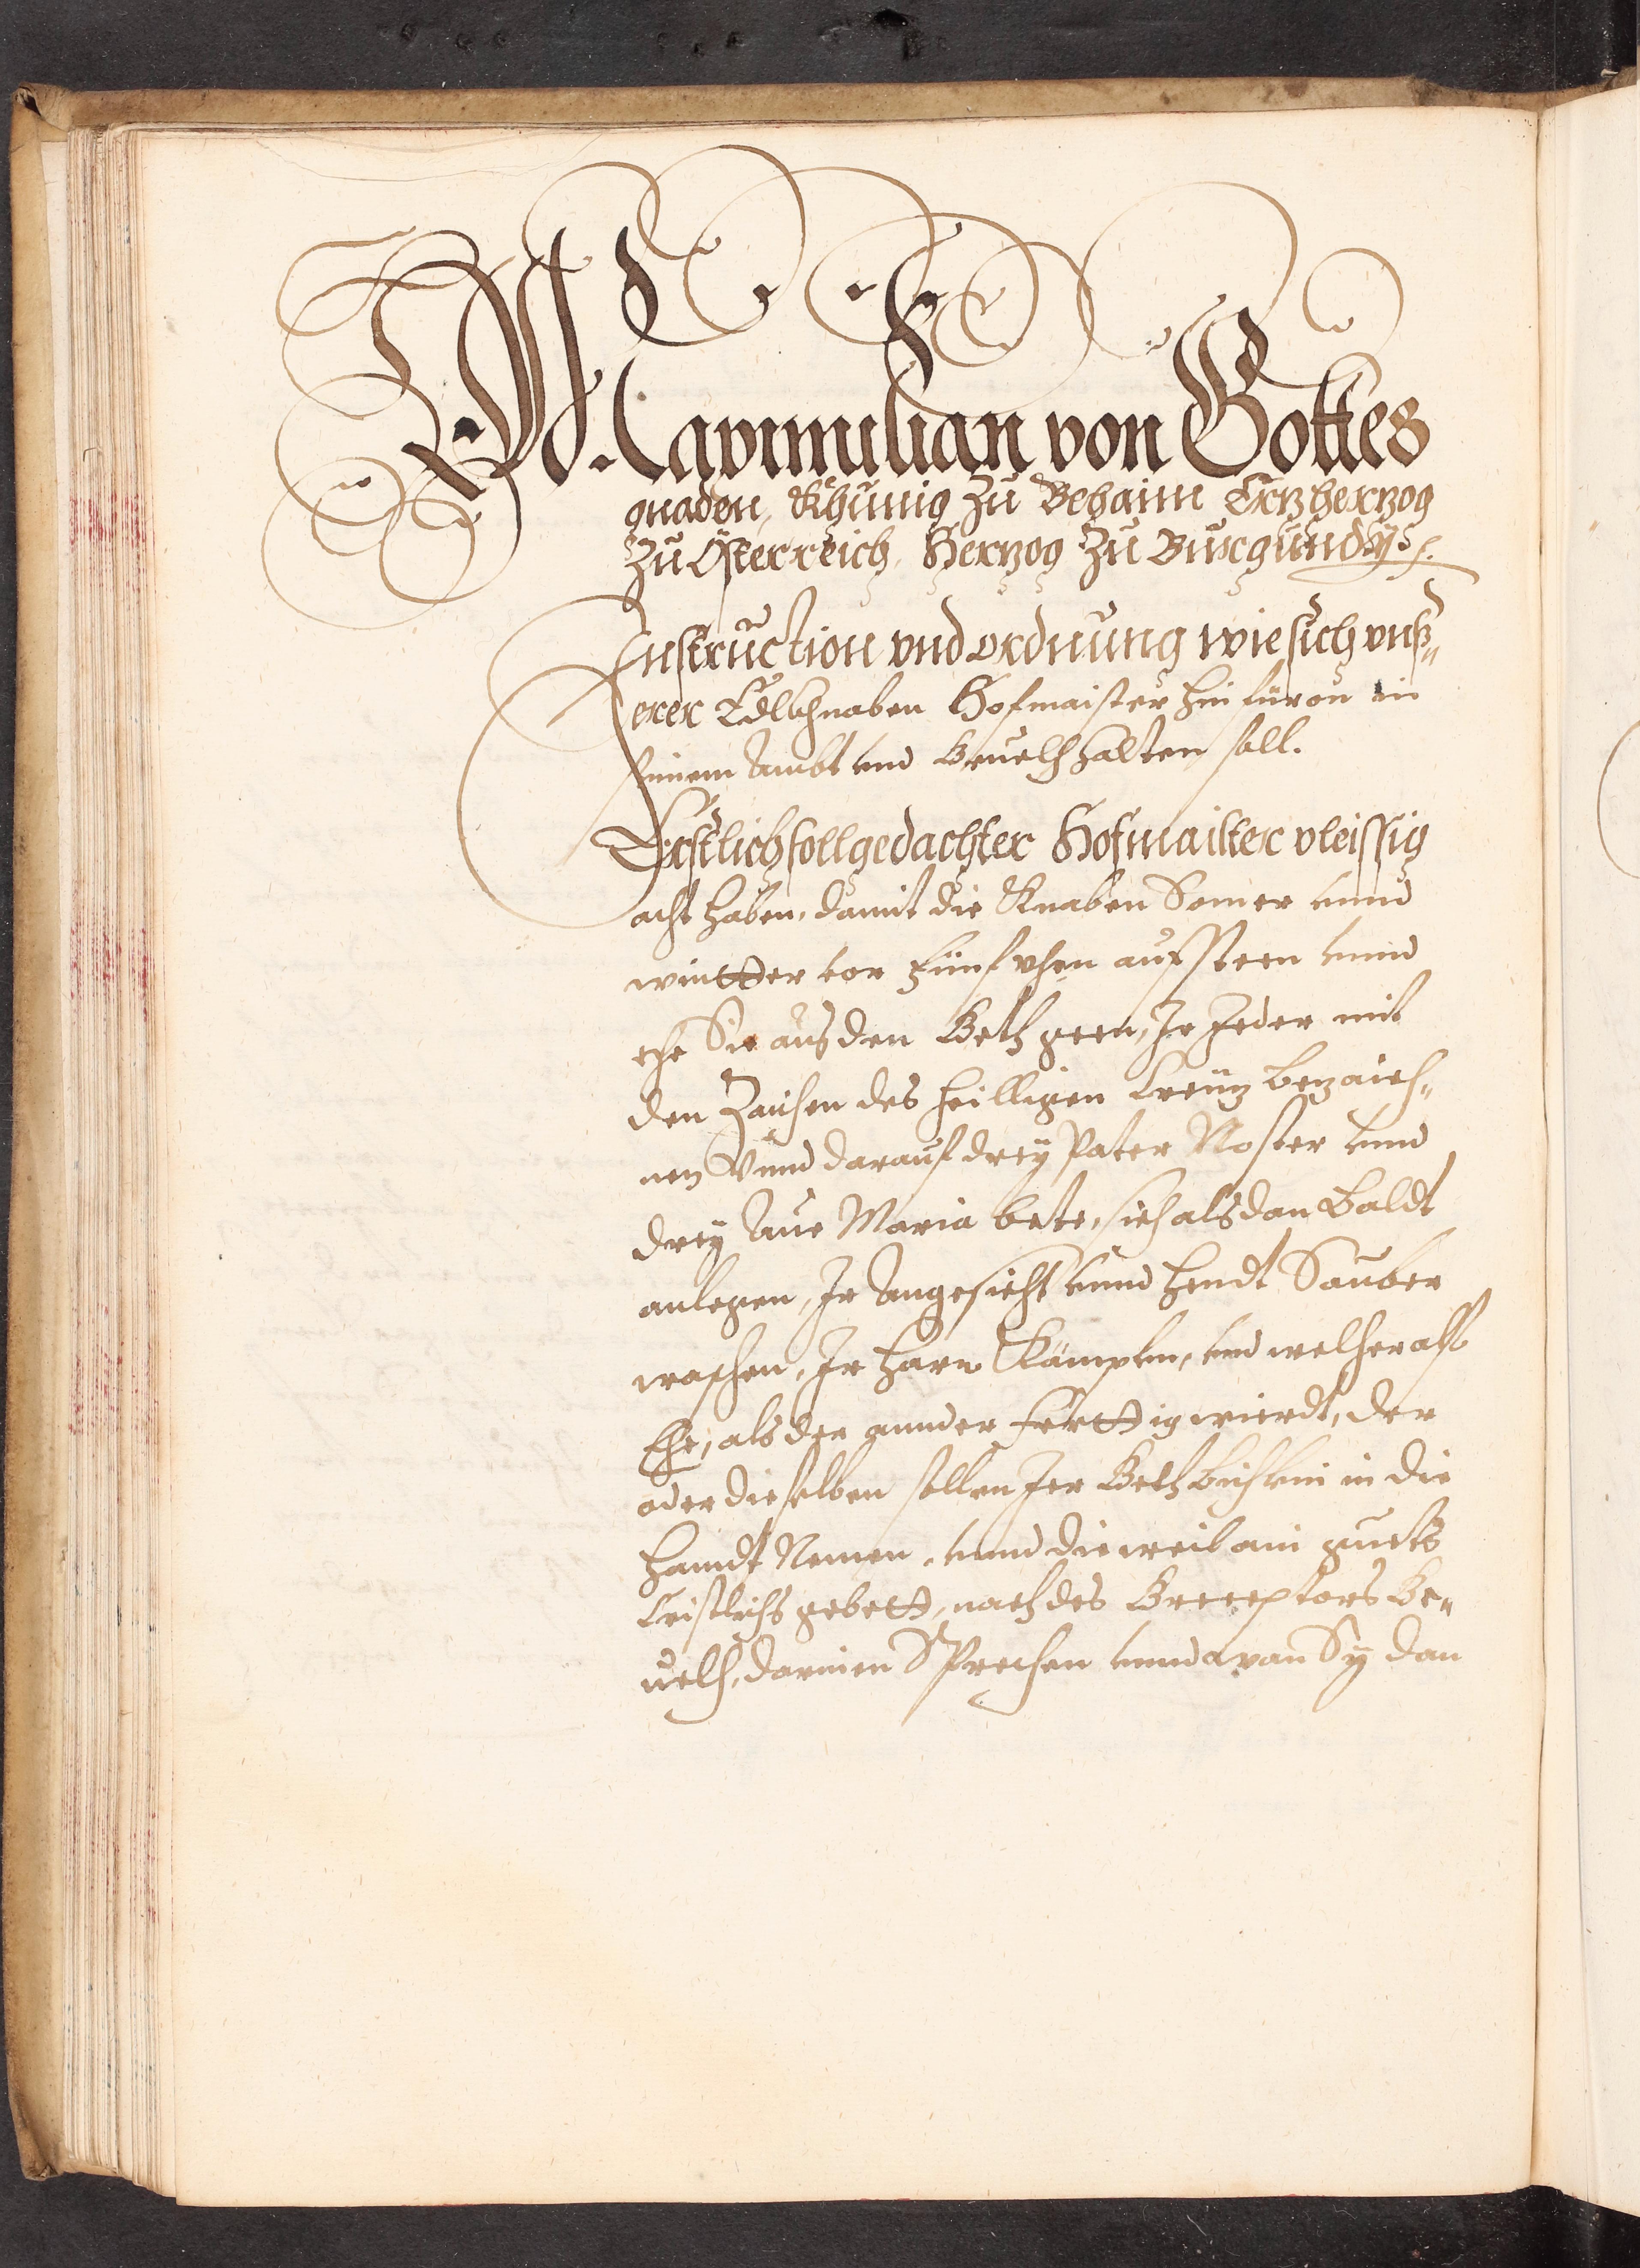 Maximilian von Gottes
gnaden, Khünig zu Behaim Ertzhertzog
zu Österreich, Hertzog zu Burgundj ꝛc.
Instruction vnd ordnung wie sich vnß„
erer Edlkhnaben Hofmaister hinfüron in
seinem Ambt vnd Beuelh halten soll.
Erstlich soll gedachter Hofmaister vleissig
acht haben, damit die Knaben Somer vnnd
wintter vor fünf vhrn aufsteen vnnd
ehe Sie aus den Beth geen, Ir Jeder mit
den Zaichen des heilligen Creütz bezaich„
nen Vnnd darauf drey Pater Noster vnnd
drey Aue Maria bete, sich alsdan baldt
anlegen, Ir Angesicht vnnd hendt Sauber
waschen, Ir harr Kämplen, vnd welher also
Ehe, als der annder ferttig wierdt, der
oder dieselben sollen Jer Bethbüchlein in die
hanndt Nemen, vnnd dieweil ain guets
Cristlichs gebett, nach des Preceptors Be„
uelh, darinen Sprechen vnnd wan Sy dan